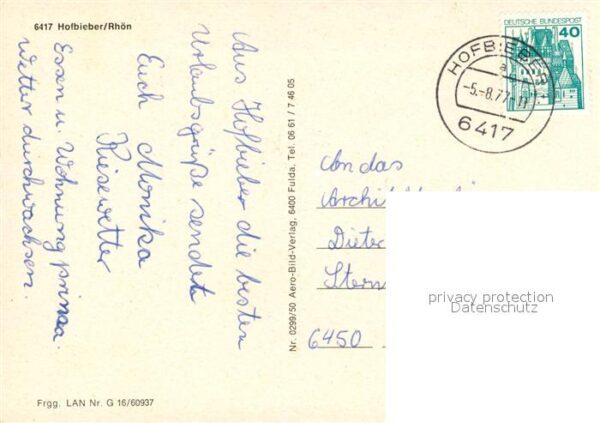 6417 Hofbieber/Rhön
Aus Hofbieber die besten
Urlaubsgrüße sendet
Euch Monika
Riesewetter
Essen u. Wohnung prima.
Wetter durchwachsen.
Frgg. LAN Nr. G 16/60937
Nr. 0299/50 Aero-Bild-Verlag, 6400 Fulda, Tel. 06 61 / 7 46 05
DEUTSCHE BUNDESPOST
40
HOFBIEBER
a
-5.-8.77
6417
An das
Dieter
Stern
6450
privacy protection
Datenschutz